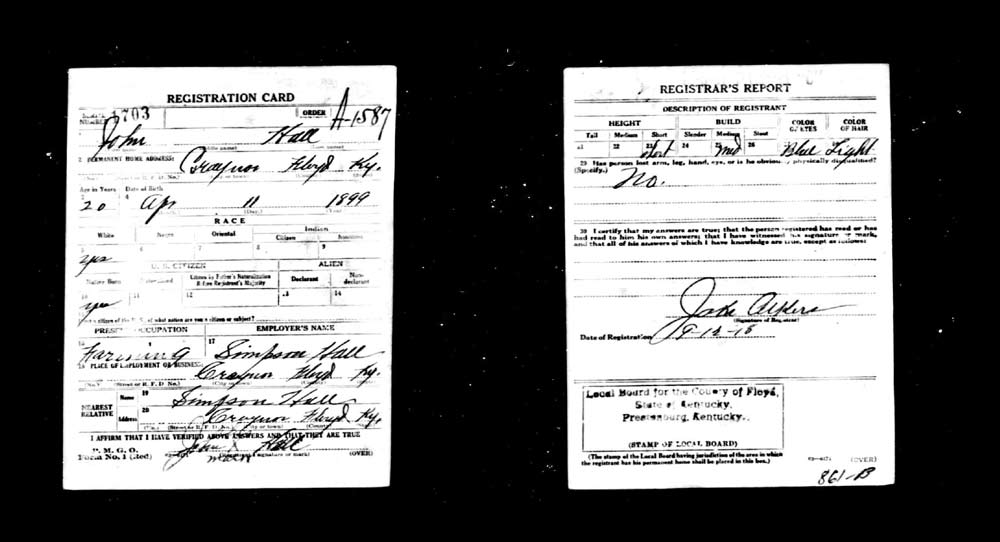 REGISTRATION CARD
NUMBER 1703 ORDER A-1587
John Hall
2 PERMANENT HOME ADDRESS: Craynor Floyd Ky.
Age in Years Date of Birth
20 4 Apr 11 1899
RACE
White Negro Oriental Indian
Citizen
5 6 7 8 9
yes
U. S. CITIZEN ALIEN
Native Born Citizen by Father's Naturalization Before Registrant's Majority Declarant Non-declarant
10 11 12 13 14
yes
citizen of the U. S., of what nation are you a citizen or subject?
PRESENT OCCUPATION EMPLOYER'S NAME
Farming 17 Simpson Hall
18 PLACE OF EMPLOYMENT OR BUSINESS: Craynor Floyd Ky.
(No.) (Street or R. F. D. No.) (City or town) (County)
NEAREST RELATIVE Name 19 Simpson Hall
Address 20 Craynor Floyd Ky.
(No.) (Street or R. F. D. No.) (City or town) (County)
I AFFIRM THAT I HAVE VERIFIED ABOVE ANSWERS AND THAT THEY ARE TRUE
P. M. G. O.
Form No. 1 (Red) John Hall
mark (Registrant's signature or mark) (OVER)
REGISTRAR'S REPORT
DESCRIPTION OF REGISTRANT
HEIGHT BUILD COLOR OF EYES COLOR OF HAIR
Tall Medium Short Slender Medium Stout
21 22 23 Short 24 25 Med 26 Blue Light
29 Has person lost arm, leg, hand, eye, or is he obviously physically disqualified?
(Specify.) No.
30 I certify that my answers are true; that the person registered has read or has
had read to him his own answers; that I have witnessed his signature or mark,
and that all of his answers of which I have knowledge are true, except as follows:
Jake Akers
(Signature of Registrar)
Date of Registration 9-12-18
Local Board for the County of Floyd,
State of Kentucky,
Prestonsburg, Kentucky.
(STAMP OF LOCAL BOARD)
(The stamp of the Local Board having jurisdiction of the area in which
the registrant has his permanent home shall be placed in this box.)
(OVER)
861-B